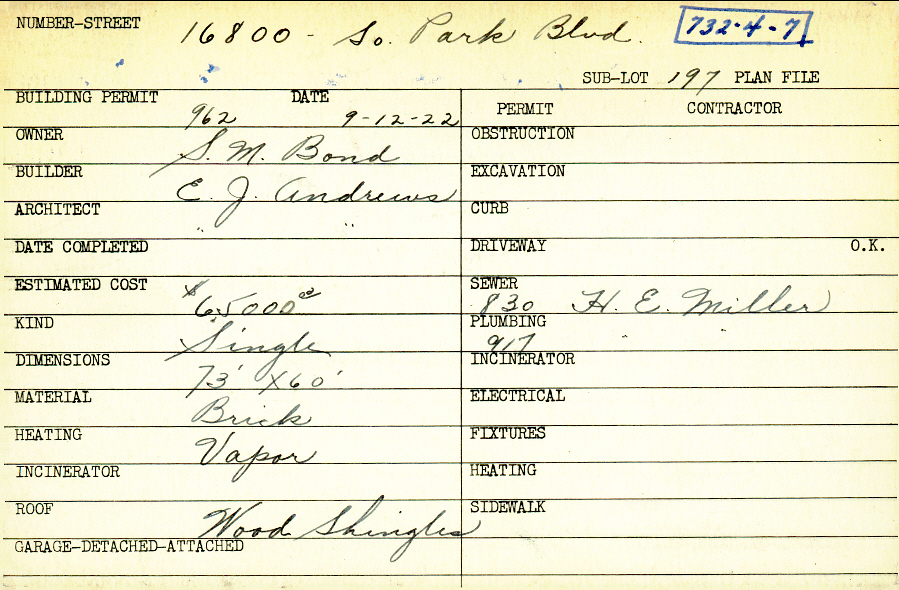 NUMBER-STREET 16800 - So. Park Blvd. 732-4-7
SUB-LOT 197 PLAN FILE
BUILDING PERMIT 962 DATE 9-12-22
OWNER S. M. Bond
BUILDER E. J. Andrews
ARCHITECT " "
DATE COMPLETED
ESTIMATED COST $65000
KIND Single
DIMENSIONS 73' X 60'
MATERIAL Brick
HEATING Vapor
INCINERATOR
ROOF Wood Shingles
GARAGE-DETACHED-ATTACHED
PERMIT CONTRACTOR
OBSTRUCTION
EXCAVATION
CURB
DRIVEWAY O.K.
SEWER 830 H. E. Miller
PLUMBING 917 " "
INCINERATOR
ELECTRICAL
FIXTURES
HEATING
SIDEWALK